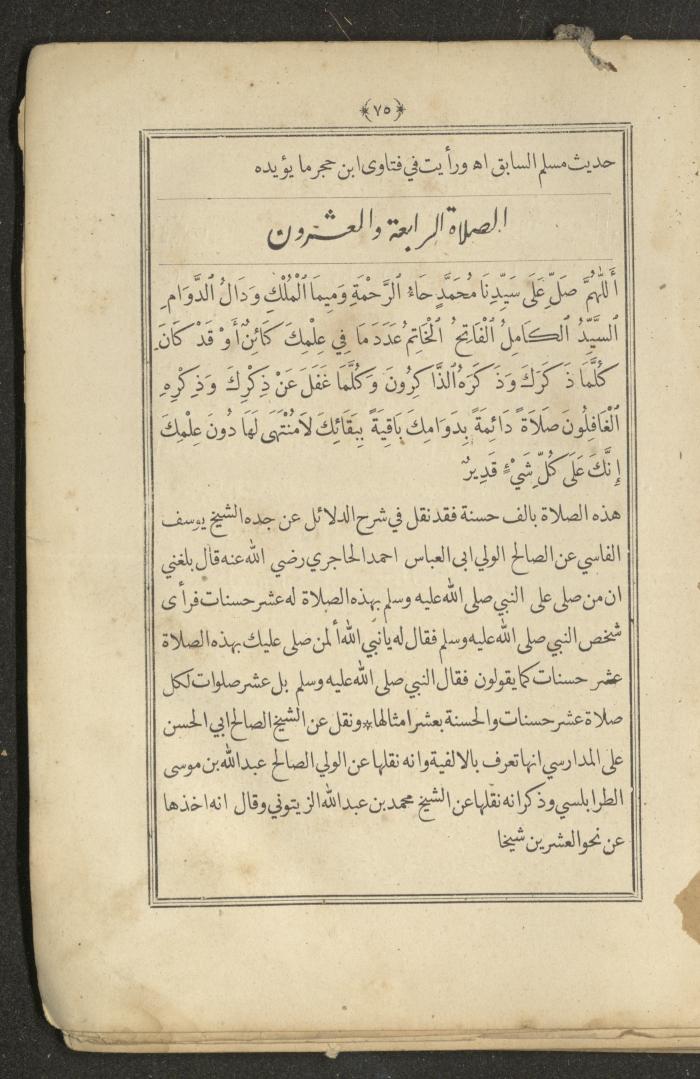 ﴿٧٥﴾
حديث مسلم السابق اه ورأيت في فتاوى ابن حجر ما يؤيده
الصلاة الرابعة والعشرون
أَللّٰهُمَّ صَلِّ عَلَى سَيِّدِنَا مُحَمَّدٍ حَاءُ الرَّحْمَةِ وَمِيمَا الْمُلْكِ وَدَالُ الدَّوَامِ
السَّيِّدُ الْكَامِلُ الْفَاتِحُ الْخَاتِمُ عَدَدَ مَا فِي عِلْمِكَ كَائِنٌ أَوْ قَدْ كَانَ
كُلَّمَا ذَكَرَكَ وَذَكَرَهُ الذَّاكِرُونَ وَكُلَّمَا غَفَلَ عَنْ ذِكْرِكَ وَذِكْرِهِ
الْغَافِلُونَ صَلَاةً دَائِمَةً بِدَوَامِكَ بَاقِيَةً بِبَقَائِكَ لَامُنْتَهَى لَهَا دُونَ عِلْمِكَ
إِنَّكَ عَلَى كُلِّ شَيْءٍ قَدِيرٌ
هذه الصلاة بالف حسنة فقد نقل في شرح الدلائل عن جده الشيخ يوسف
الفاسي عن الصالح الولي ابى العباس احمد الحاجري رضي الله عنه قال بلغني
ان من صلى على النبي صلى الله عليه وسلم بهذه الصلاة له عشر حسنات فرأى
شخص النبي صلى الله عليه وسلم فقال له يانبي الله ألمن صلى عليك بهذه الصلاة
عشر حسنات كما يقولون فقال النبي صلى الله عليه وسلم بل عشر صلوات لكل
صلاة عشر حسنات والحسنة بعشر امثالها * ونقل عن الشيخ الصالح ابي الحسن
على المدارسي انها تعرف بالالفية وانه نقلها عن الولي الصالح عبد الله بن موسى
الطرابلسي وذكر انه نقلها عن الشيخ محمد بن عبد الله الزيتوني وقال انه اخذها
عن نحو العشرين شيخا